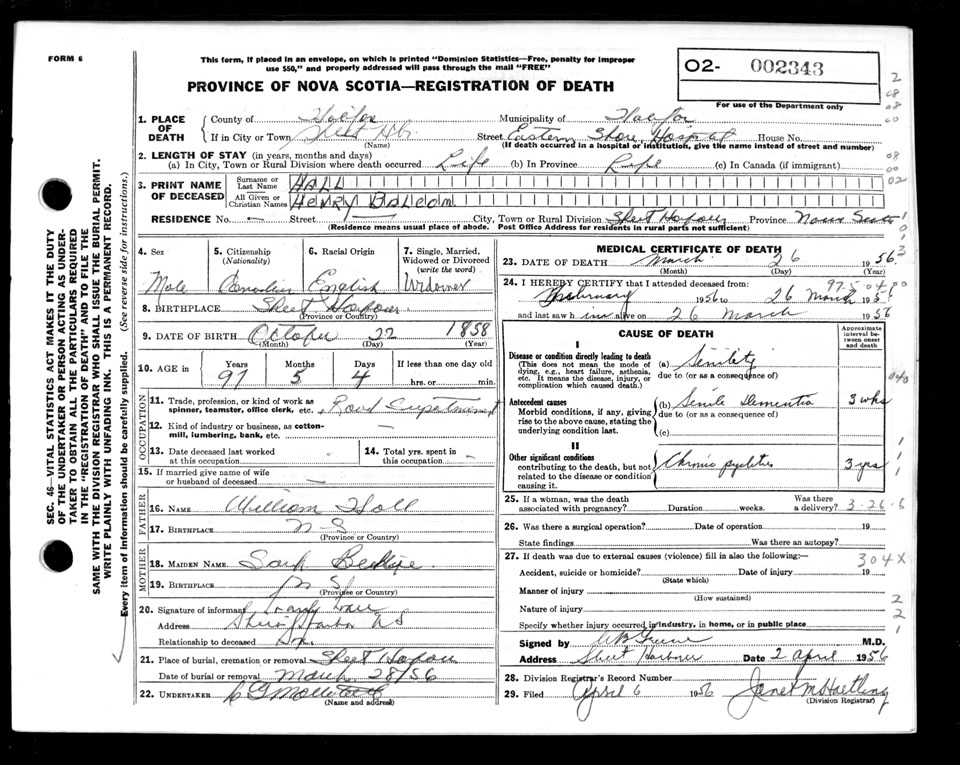 FORM 6
This form, if placed in an envelope, on which is printed "Dominion Statistics—Free, penalty for improper
use $50," and properly addressed will pass through the mail "FREE"
PROVINCE OF NOVA SCOTIA—REGISTRATION OF DEATH
O2- 002343
For use of the Department only
1. PLACE OF DEATH
County of Halifax Municipality of Halifax
If in City or Town Sheet Hbr. Street Eastern Shore Hospital House No.
(Name) (If death occurred in a hospital or institution, give the name instead of street and number)
2. LENGTH OF STAY (in years, months and days)
(a) In City, Town or Rural Division where death occurred Life (b) In Province Life (c) In Canada (if immigrant)
3. PRINT NAME OF DECEASED
Surname or Last Name HALL
All Given or Christian Names HENRY BALCOM
RESIDENCE No. — Street — City, Town or Rural Division Sheet Harbour Province Nova Scotia
(Residence means usual place of abode. Post Office Address for residents in rural parts not sufficient)
4. Sex
Male
5. Citizenship
(Nationality)
Canadian
6. Racial Origin
English
7. Single, Married, Widowed or Divorced
(write the word)
Widower
8. BIRTHPLACE Sheet Harbour
(Province or Country)
9. DATE OF BIRTH October 22 1858
(Month) (Day) (Year)
10. AGE in
Years Months Days If less than one day old
97 5 4 hrs. or min.
OCCUPATION
11. Trade, profession, or kind of work as
spinner, teamster, office clerk, etc. Road
12. Kind of industry or business, as cotton-
mill, lumbering, bank, etc. —
13. Date deceased last worked
at this occupation —
14. Total yrs. spent in
this occupation —
15. If married give name of wife
or husband of deceased —
FATHER
16. Name William Hall
17. Birthplace N S
(Province or Country)
MOTHER
18. Maiden Name
19. Birthplace N S
(Province or Country)
20. Signature of informant
Address NS
Relationship to deceased
21. Place of burial, cremation or removal Sheet Harbour
Date of burial or removal March 28/56
22. Undertaker
(Name and address)
MEDICAL CERTIFICATE OF DEATH
23. DATE OF DEATH March 26 1956
(Month) (Day) (Year)
24. I HEREBY CERTIFY that I attended deceased from:
February 1956 to 26 March 1956
and last saw him alive on 26 March 1956
CAUSE OF DEATH
Approximate interval between onset and death
I
Disease or condition directly leading to death
(This does not mean the mode of
dying, e.g., heart failure, asthenia,
etc. It means the disease, injury, or
complication which caused death.)
(a) Senility
due to (or as a consequence of)
Antecedent causes
Morbid conditions, if any, giving
rise to the above cause, stating the
underlying condition last.
(b) Senile Dementia 3 wks
due to (or as a consequence of)
(c)
II
Other significant conditions
contributing to the death, but not
related to the disease or condition
causing it.
Chronic pyelitis 3 yrs
25. If a woman, was the death
associated with pregnancy? Duration weeks. Was there
a delivery?
3-26-6
26. Was there a surgical operation? Date of operation 19
State findings Was there an autopsy?
27. If death was due to external causes (violence) fill in also the following:—
304X
Accident, suicide or homicide? Date of injury 19
(State which)
Manner of injury
(How sustained)
Nature of injury
Specify whether injury occurred in industry, in home, or in public place
Signed by M.D.
Address Sheet Harbour Date 2 April 1956
28. Division Registrar's Record Number
29. Filed April 6 1956 Janet M Hartling
(Division Registrar)
SEC. 46—VITAL STATISTICS ACT MAKES IT THE DUTY
OF THE UNDERTAKER OR PERSON ACTING AS UNDER-
TAKER TO OBTAIN ALL THE PARTICULARS REQUIRED
IN THE "REGISTRATION OF DEATH" AND TO FILE THE
SAME WITH THE DIVISION REGISTRAR WHO SHALL ISSUE THE BURIAL PERMIT.
WRITE PLAINLY WITH UNFADING INK. THIS IS A PERMANENT RECORD.
Every item of information should be carefully supplied. (See reverse side for instructions.)